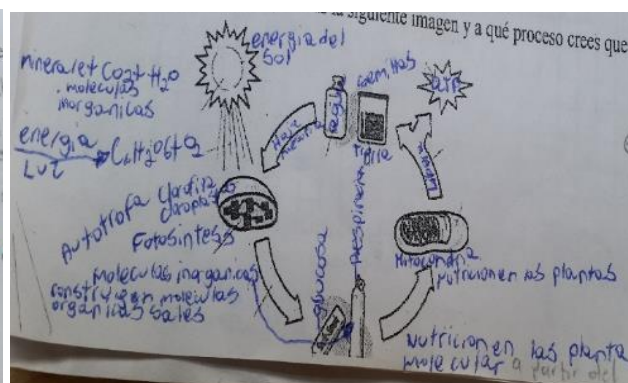 siguiente imagen y a qué proceso crees que
energia del
Sol
minerales CO2+ H2O
moleculas
inorganicas
energia
LUZ
C6H12O6+O2
semillas
ATP
agua
Autotrofa
Clorofila
cloroplasto
Fotosintesis
moleculas inorganicas
construyen moleculas
organicas sales
glucosa
Respiracion
Mitocondria
Nutricion en las plantas
Nutricion en las planta
molecular a partir del